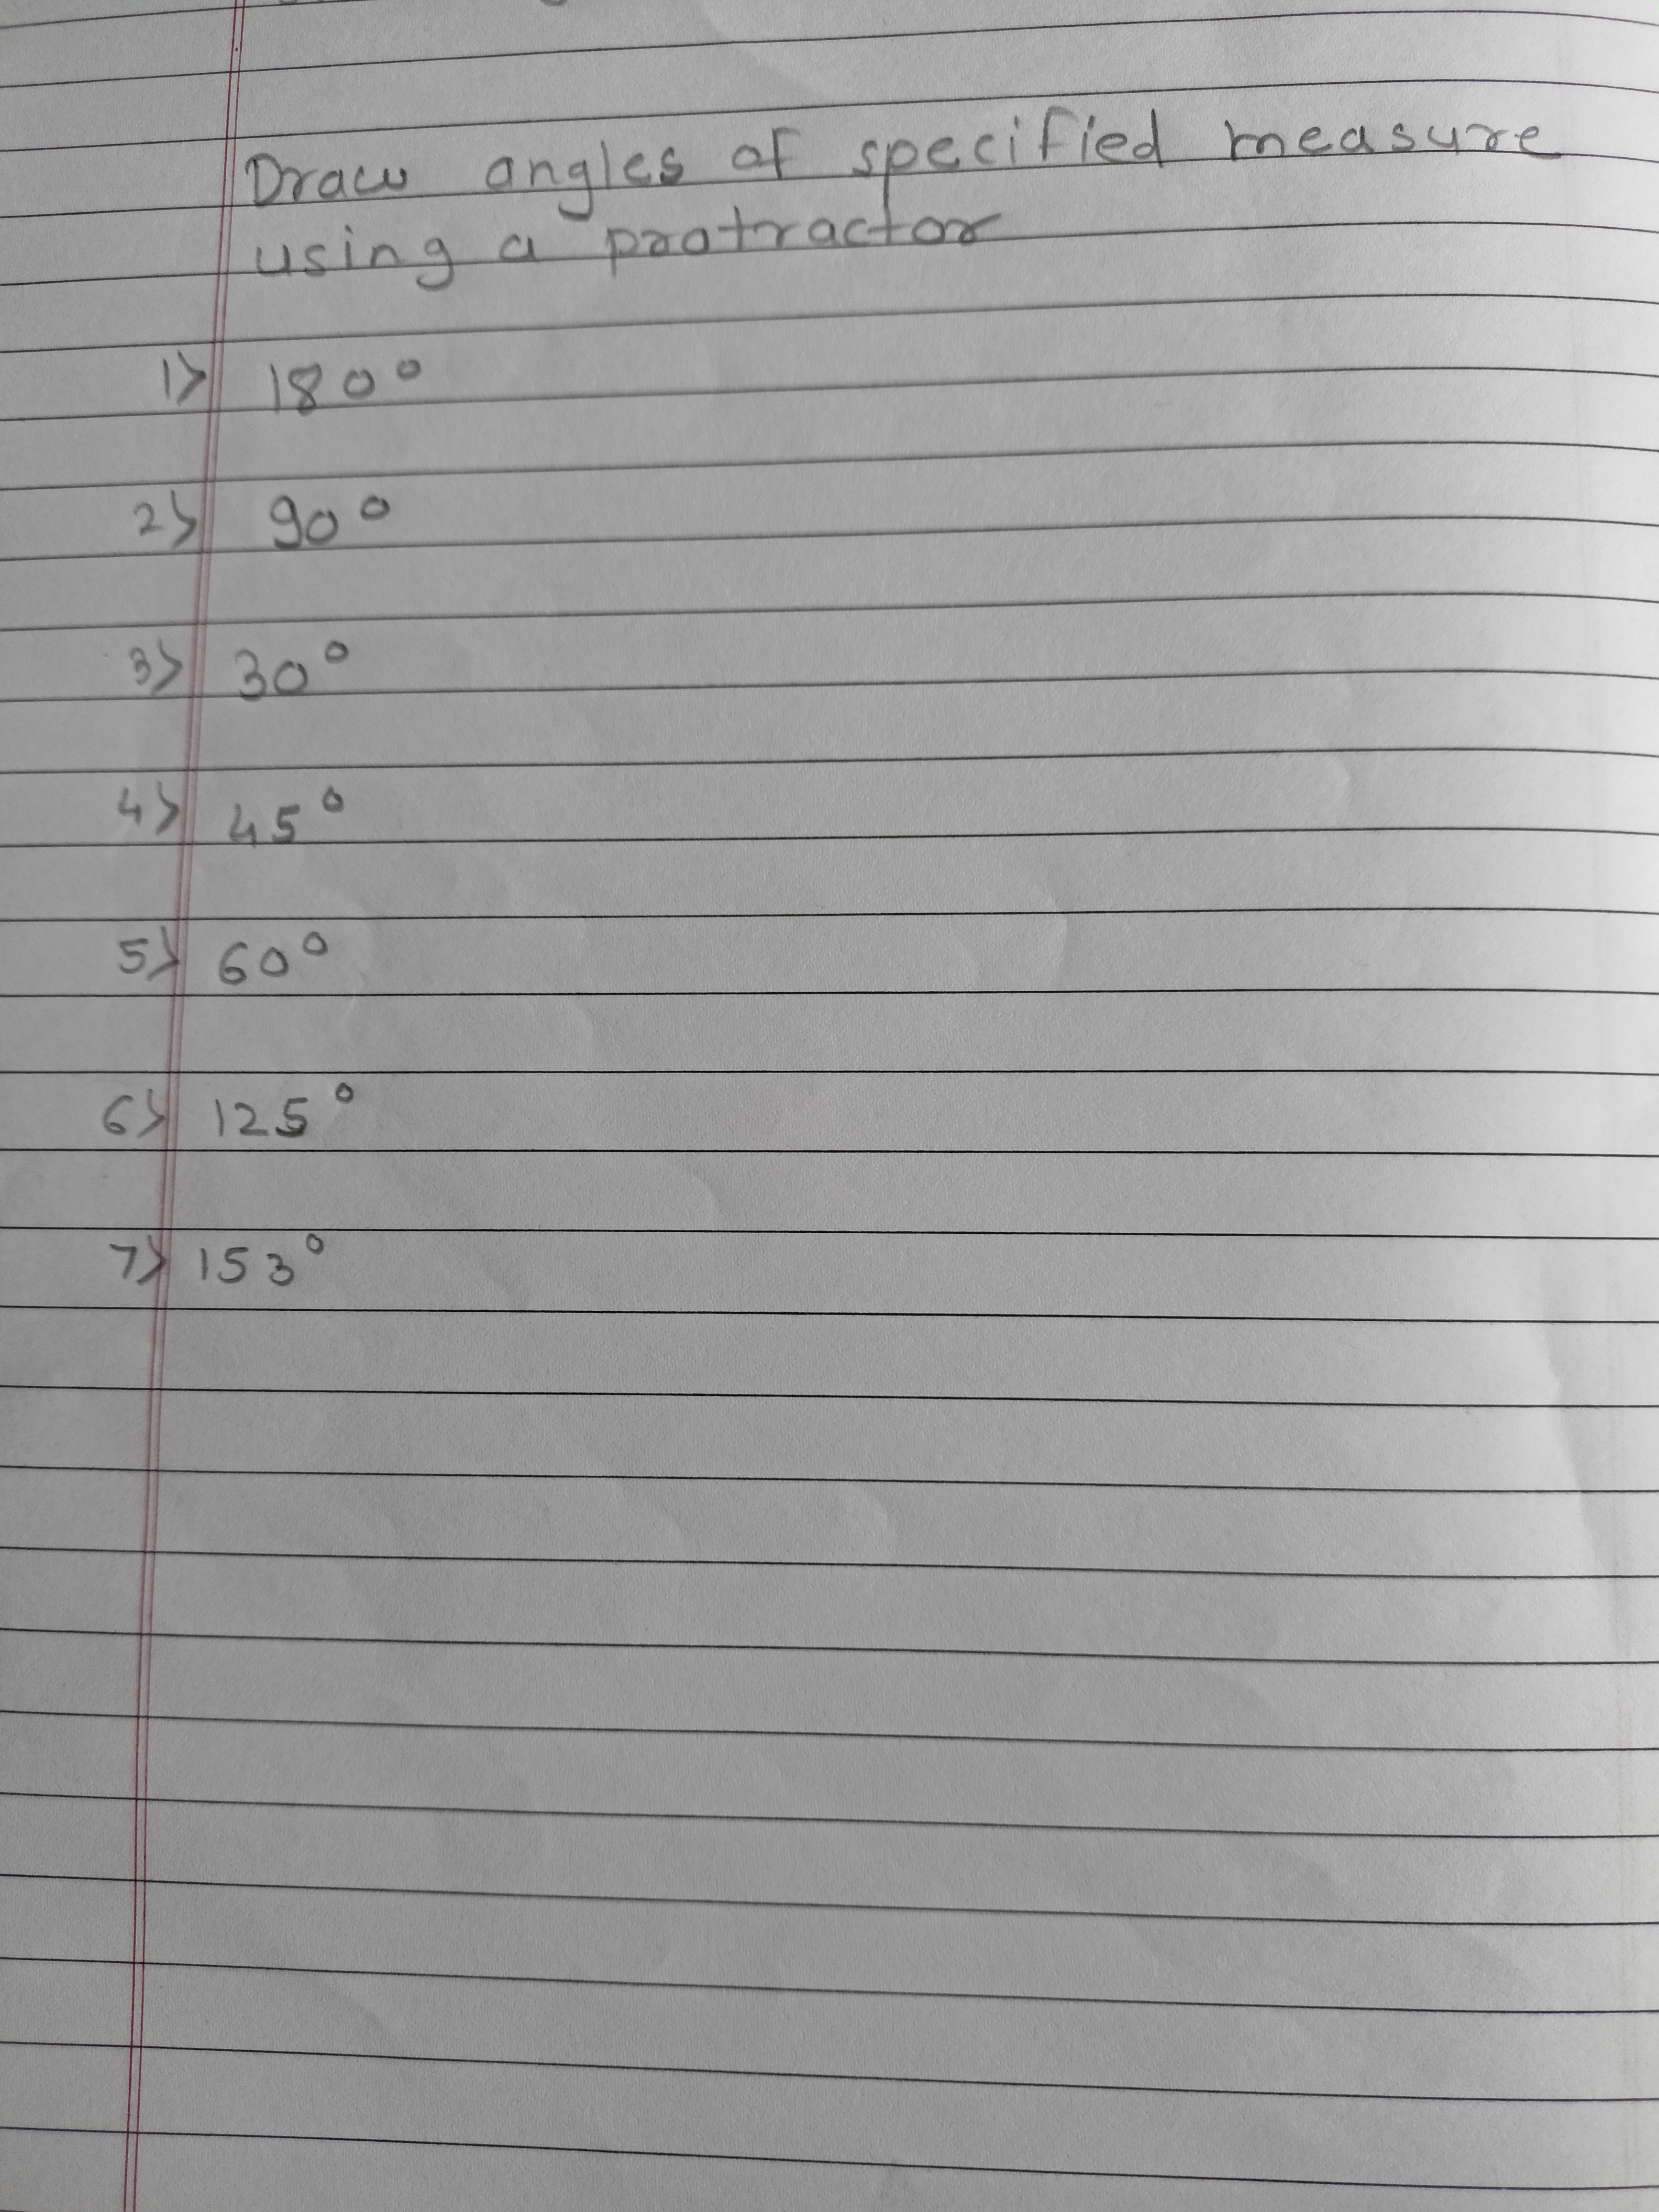 Draw angles of specified measure
using a protractor
1> 180°
2> 90°
3> 30°
4> 45°
5> 60°
6> 125°
7> 153°